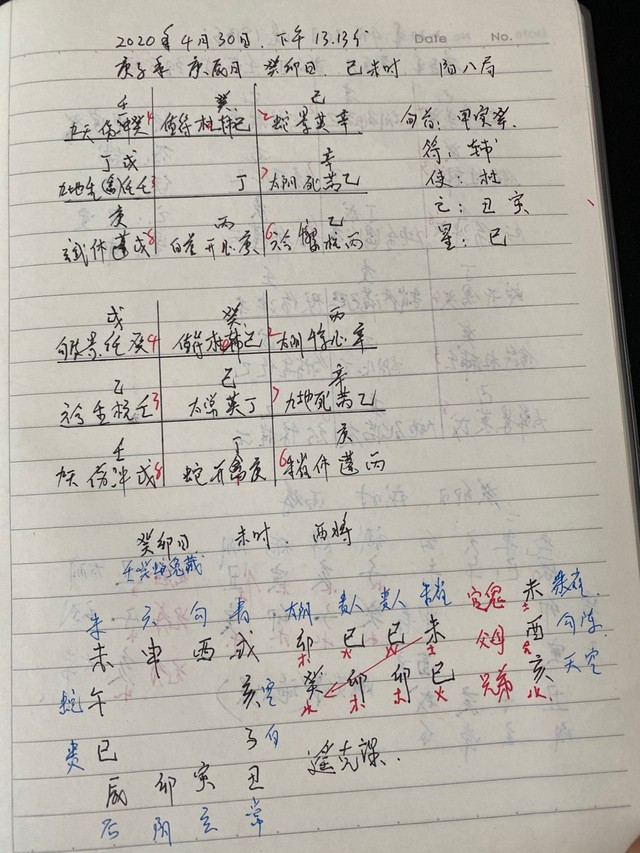 2020年4月30日.下午13.13分 Date No.
庚子年 庚辰月 癸卯日 己未时 阳八局
壬 癸 己
九天伤冲癸4 值符杜辅己 2蛇景英辛 旬首:甲寅癸
丁戊 辛 符:辅
九地生(禽)任壬3 丁 7太阴死芮乙 使:杜
庚 丙 乙 亡:丑寅
玄武休蓬戊8 白虎开心庚 6六合惊柱丙 星:巳
戊 癸 丙
景任癸4 值符杜辅己 2太阴 心辛
乙 己 辛
六合 柱壬3 太常英丁 7九地死芮乙
壬 丁 庚
九天伤冲戊8 蛇开禽庚 6朱雀休蓬丙
癸卯日 未时 酉将
朱 六 句 青 太阴 贵人 贵人 朱雀 官鬼 未 朱雀
未 申 酉 戌 卯木 巳火 巳火 未土 父母 酉 句陈
蛇 午 亥 空 癸水 卯木 卯木 巳火 兄弟 亥水 天空
贵 巳 子 白 遥克课.
辰 卯 寅 丑
后 阴 玄 常